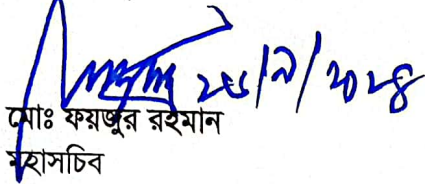 ২৫/৯/২০২৪
মোঃ ফয়জুর রহমান
মহাসচিব